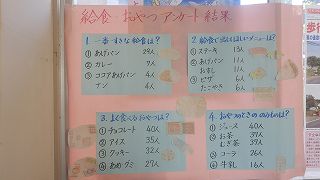 給食・おやつ アンケート 結果
1. 一番 すきな 給食は?
① あげパン 29人
② カレー 7人
③ ココアあげパン 4人
ナン 4人
2. 給食に出してほしいメニューは?
① ステーキ 13人
② あげパン 11人
おすし 11人
③ ピザ 6人
たこやき 6人
3. よく食べるおやつは?
① チョコレート 40人
② アイス 35人
③ クッキー 32人
④ あめ・グミ 27人
4. おやつのときののみものは?
① ジュース 40人
② お茶 39人
むぎ茶 39人
③ コーラ 26人
④ 牛乳 16人